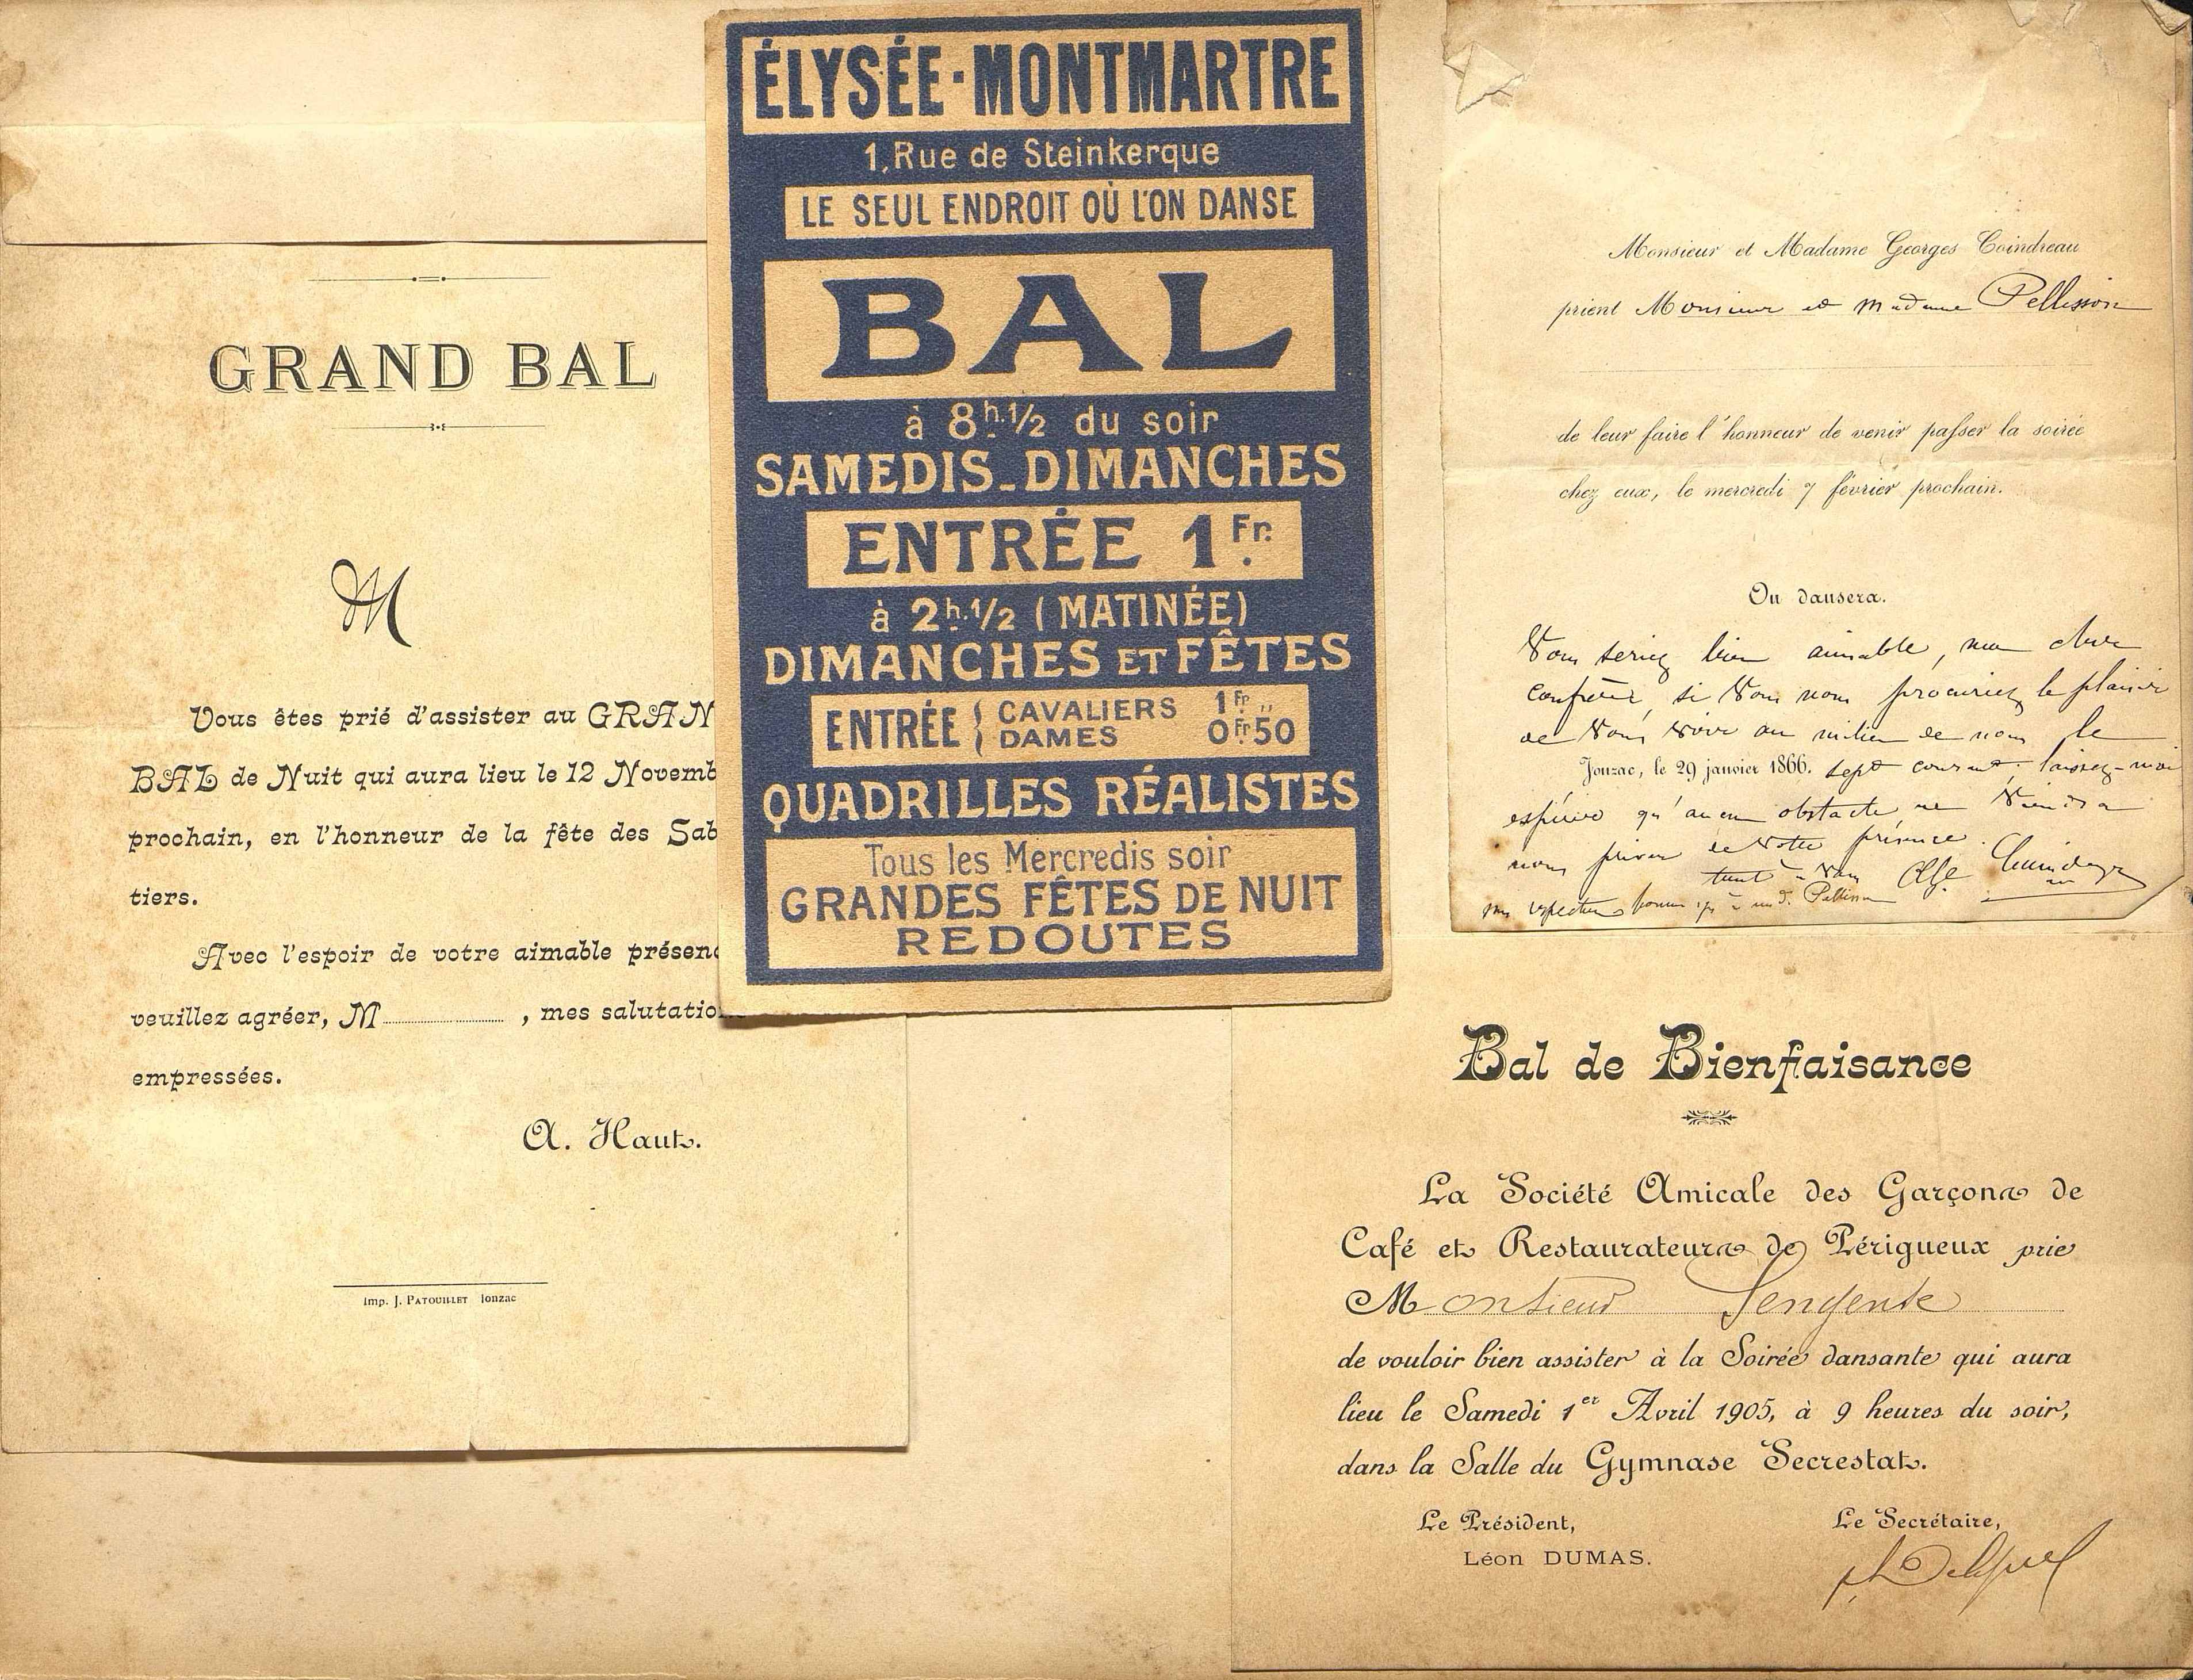 GRAND BAL
M
Vous êtes prié d'assister au GRAN
BAL de Nuit qui aura lieu le 12 Novemb
prochain, en l'honneur de la fête des Sab
tiers.
Avec l'espoir de votre aimable présenc
veuillez agréer, M , mes salutatio
empressées.
A. Haut.
Imp. J. PATOUILLET Jonzac
ÉLYSÉE-MONTMARTRE
1, Rue de Steinkerque
LE SEUL ENDROIT OÙ L'ON DANSE
BAL
à 8h.1/2 du soir
SAMEDIS_DIMANCHES
ENTRÉE 1Fr.
à 2h.1/2 (MATINÉE)
DIMANCHES ET FÊTES
ENTRÉE { CAVALIERS 1Fr.,,
DAMES 0Fr50
QUADRILLES RÉALISTES
Tous les Mercredis soir
GRANDES FÊTES DE NUIT
REDOUTES
Monsieur et Madame Georges Coindreau
prient Monsieur et Madame Pellisson
de leur faire l'honneur de venir passer la soirée
chez eux, le mercredi 7 février prochain.
On dansera.
Vous seriez bien aimable, mon cher
confrère, si vous nous procuriez le plaisir
de vous voir au milieu de nous le
Jonzac, le 29 janvier 1866. sept courant; laissez-moi
espérer qu'aucun obstacle ne viendra
nous priver de votre présence.
tout à vous
Bal de Bienfaisance
La Société Amicale des Garçons de
Café et Restaurateurs de Périgueux prie
Monsieur
de vouloir bien assister à la Soirée dansante qui aura
lieu le Samedi 1er Avril 1905, à 9 heures du soir,
dans la Salle du Gymnase Secrestat.
Le Président,
Léon DUMAS.
Le Secrétaire,